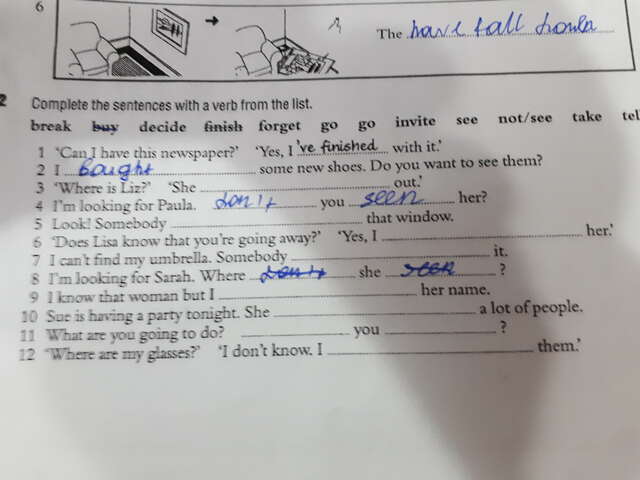 6
The have fall
2 Complete the sentences with a verb from the list.
break buy decide finish forget go go invite see not/see take tel
1 'Can I have this newspaper?' 'Yes, I 've finished with it.'
2 I Bought some new shoes. Do you want to see them?
3 'Where is Liz?' 'She out.'
4 I'm looking for Paula. don't you seen her?
5 Look! Somebody that window.
6 'Does Lisa know that you're going away?' 'Yes, I her.'
7 I can't find my umbrella. Somebody it.
8 I'm looking for Sarah. Where don't she seen ?
9 I know that woman but I her name.
10 Sue is having a party tonight. She a lot of people.
11 What are you going to do? you ?
12 'Where are my glasses?' 'I don't know. I them.'